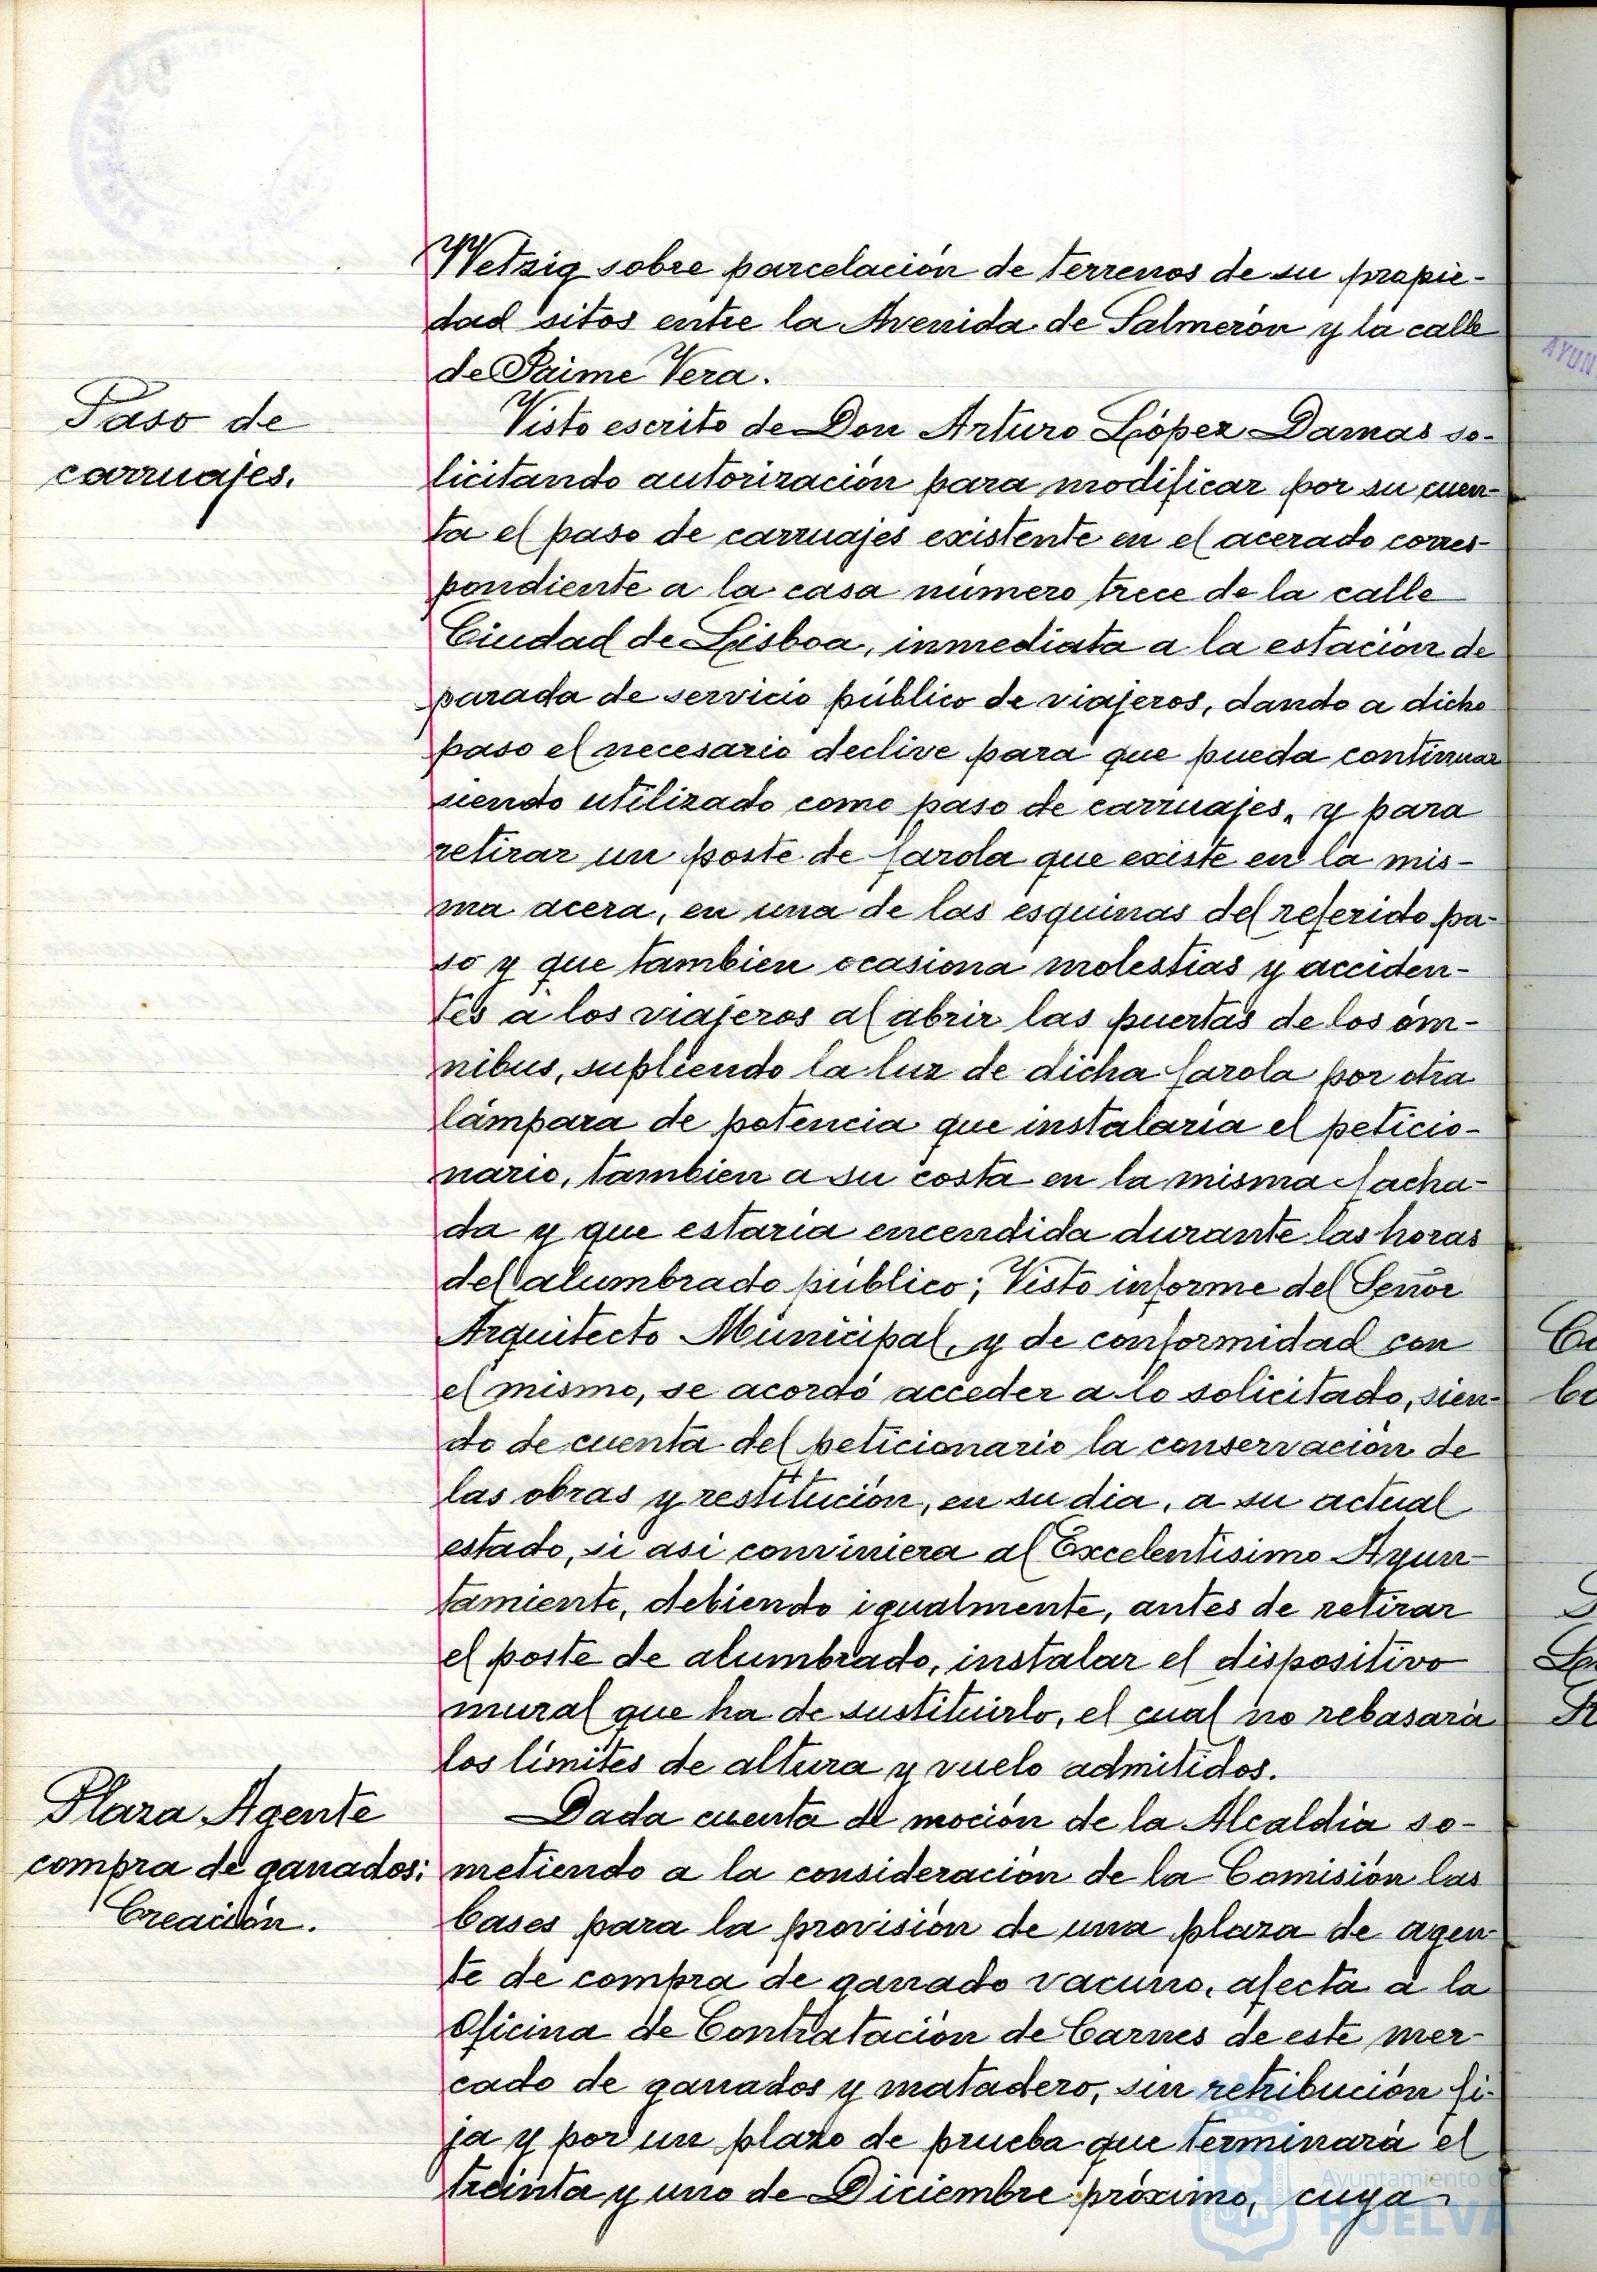 Wetzig sobre parcelación de terrenos de su propie-
dad sitos entre la Avenida de Salmerón y la calle
de Jaime Vera.
Paso de
carruajes.
Visto escrito de Don Arturo López Damas so-
licitando autorización para modificar por su cuen-
ta el paso de carruajes existente en el acerado corres-
pondiente a la casa número trece de la calle
Ciudad de Lisboa, inmediata a la estación de
parada de servicio público de viajeros, dando a dicho
paso el necesario declive para que pueda continuar
siendo utilizado como paso de carruajes, y para
retirar un poste de farola que existe en la mis-
ma acera, en una de las esquinas del referido pa-
so y que tambien ocasiona molestias y acciden-
tes a los viajeros al abrir las puertas de los óm-
nibus, supliendo la luz de dicha farola por otra
lámpara de potencia que instalaría el peticio-
nario, tambien a su costa en la misma facha-
da y que estaría encendida durante las horas
del alumbrado público; Visto informe del Señor
Arquitecto Municipal, y de conformidad con
el mismo, se acordó acceder a lo solicitado, sien-
do de cuenta del peticionario la conservación de
las obras y restitución, en su dia, a su actual
estado, si asi conviniera al Excelentísimo Ayun-
tamiento, debiendo igualmente, antes de retirar
el poste de alumbrado, instalar el dispositivo
mural que ha de sustituirlo, el cual no rebasará
los límites de altura y vuelo admitidos.
Plaza Agente
compra de ganados:
Creación.
Dada cuenta de moción de la Alcaldía so-
metiendo a la consideración de la Comisión las
bases para la provisión de una plaza de agen-
te de compra de ganado vacuno, afecta a la
Oficina de Contratación de Carnes de este mer-
cado de ganados y matadero, sin retribución fi-
ja y por un plazo de prueba que terminará el
treinta y uno de Diciembre próximo, cuya
AYUN
Ayuntamiento de
HUELVA